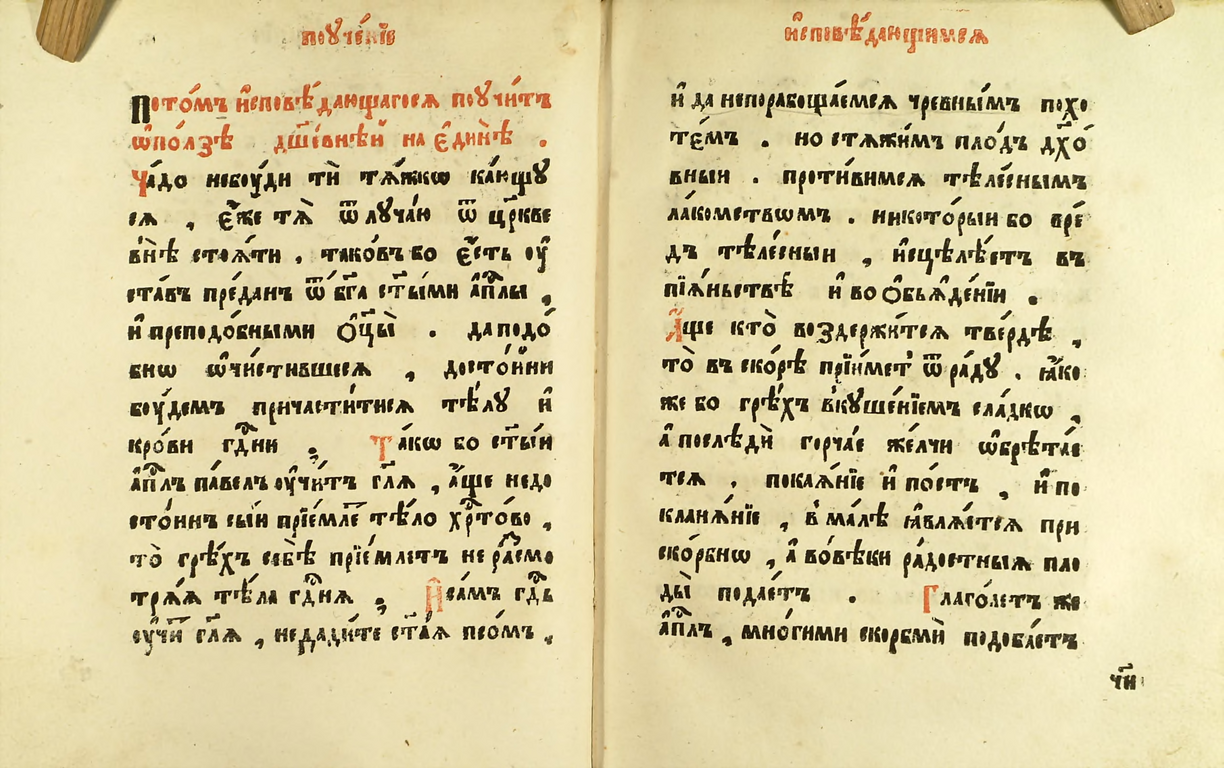 поуче́нїе
Пото́мъ и҆спове́дающагося поучи́тъ
ѡ҆по́лзѣ дш҃е́внѣй на є҆ди́нѣ .
Ча́до небоу́ди тѝ тѧ́жкѡ ка́ющу
сѧ , є҆́же тѧ̀ ѿлуча́ю ѿ цр҃кве
внѣ̀ стоѧ́ти . тако́въ бо є҆́сть оу҆
ста́въ пре́данъ ѿ бг҃а ст҃ыми а҆пⷭ҇лы ,
и҆ преподо́бными ѻ҆ц҃ы̀ . да подо́
бнѡ ѡ҆чи́стившесѧ , досто́йни
боу́демъ причасти́тисѧ тѣ́лу и҆
кро́ви гдⷭ҇ни . Та́кѡ бо ст҃ы́й
а҆пⷭ҇лъ па́велъ оу҆чи́тъ гл҃ѧ , а҆́ще недо
сто́инъ сы́й прїе́млетъ тѣ́ло хрⷭ҇то́во ,
то̀ грѣ́хъ себѣ̀ прїе́млетъ не ра́смо
трѧ́ѧ тѣ́ла гдⷭ҇нѧ . И҆ са́мъ гдⷭ҇ь
оу҆чи́тъ гл҃ѧ , не дади́те ст҃а́ѧ псо́мъ .
и҆сповѣ́дающимсѧ
и҆ да непорабоща́емсѧ чре́внымъ похо
те́мъ . но стѧжи́мъ пло́дъ дх҃о́
вныи . проти́вимсѧ тѣле́снымъ
ла́комствѡмъ . никото́рыи бо вре́
дъ тѣле́сныи , и҆сцѣлѣ́етъ въ
пїѧ́ньствѣ и҆ во ѻ҆бьѧде́нїи .
А҆́ще кто̀ воздержи́тсѧ тве́рдѣ ,
то̀ въ ско́рѣ прїи́метъ ѿра́ду . ꙗ҆ко
же бо грѣ́хъ вкуше́нїемъ сла́дкѡ ,
а҆ послѣдѝ горча́е же́лчи ѡ҆брѣта́е
тсѧ . покаѧ́нїе и҆ по́стъ , и҆ по
кланѧ́нїе , в ма́лѣ ꙗ҆влѧ́етсѧ при
ско́рбнѡ , а҆ во́вѣки ра́достныѧ пло
ды̀ подае́тъ . Глаго́летъ же
а҆пⷭ҇лъ , мно́гими скорбмѝ подоба́етъ
чⷭ҇и